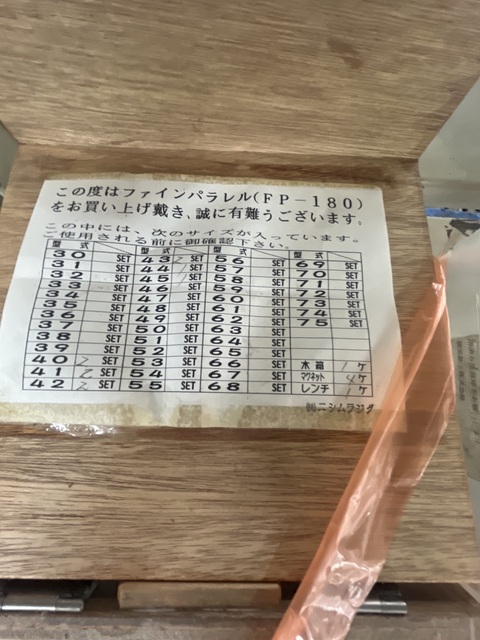 この度はファインパラレル(FP-180)
をお買い上げ戴き、誠に有難うございます。
この中には、次のサイズが入っています。
ご使用される前に御確認下さい。
型 式 型 式 型 式 型 式
30 SET 43 2 SET 56 SET 69 SET
31 SET 44 SET 57 SET 70 SET
32 SET 45 SET 58 SET 71 SET
33 SET 46 SET 59 SET 72 SET
34 SET 47 SET 60 SET 73 SET
35 SET 48 SET 61 SET 74 SET
36 SET 49 SET 62 SET 75 SET
37 SET 50 SET 63 SET
38 SET 51 SET 64 SET
39 SET 52 SET 65 SET
40 2 SET 53 SET 66 SET 木箱 1ケ
41 2 SET 54 SET 67 SET マグネット 4ケ
42 2 SET 55 SET 68 SET レンチ 1ケ
㈱ニシムラジグ